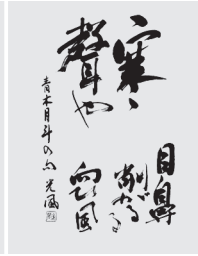 寒
聲や
目鼻
削がる
風
青木月斗の句 光風